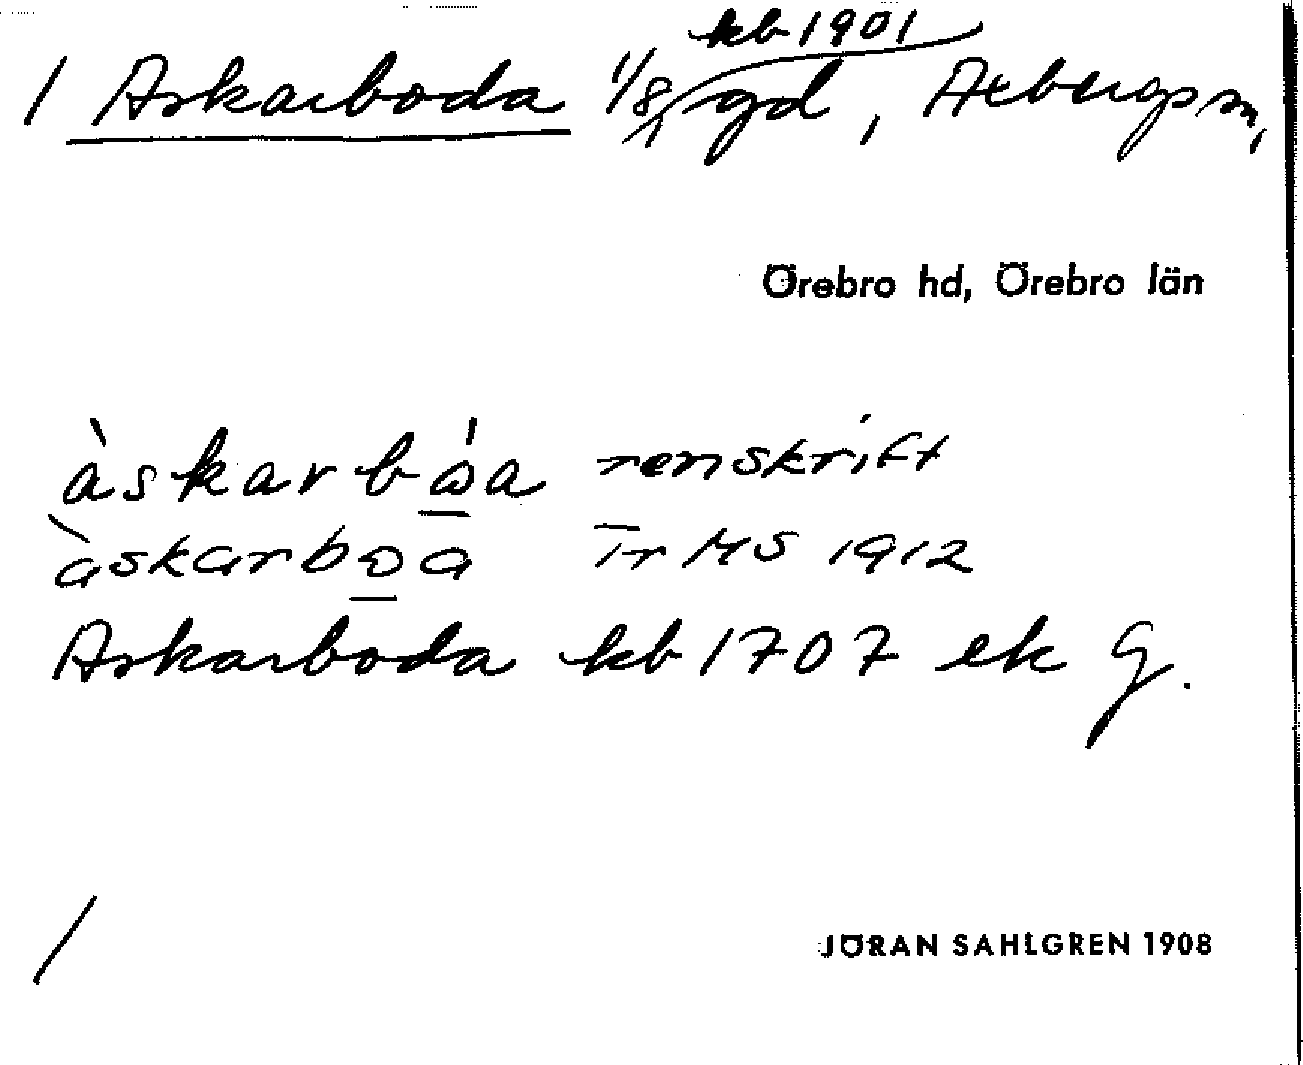 kb 1901
/ Askarboda 1/8 gd, Axbergs sn,
Örebro hd, Örebro län
àskarbώ̲a renskrift
àskarbω̲a Tr MS 1912
Askarboda kb 1707 ek G.
/
JÖRAN SAHLGREN 1908